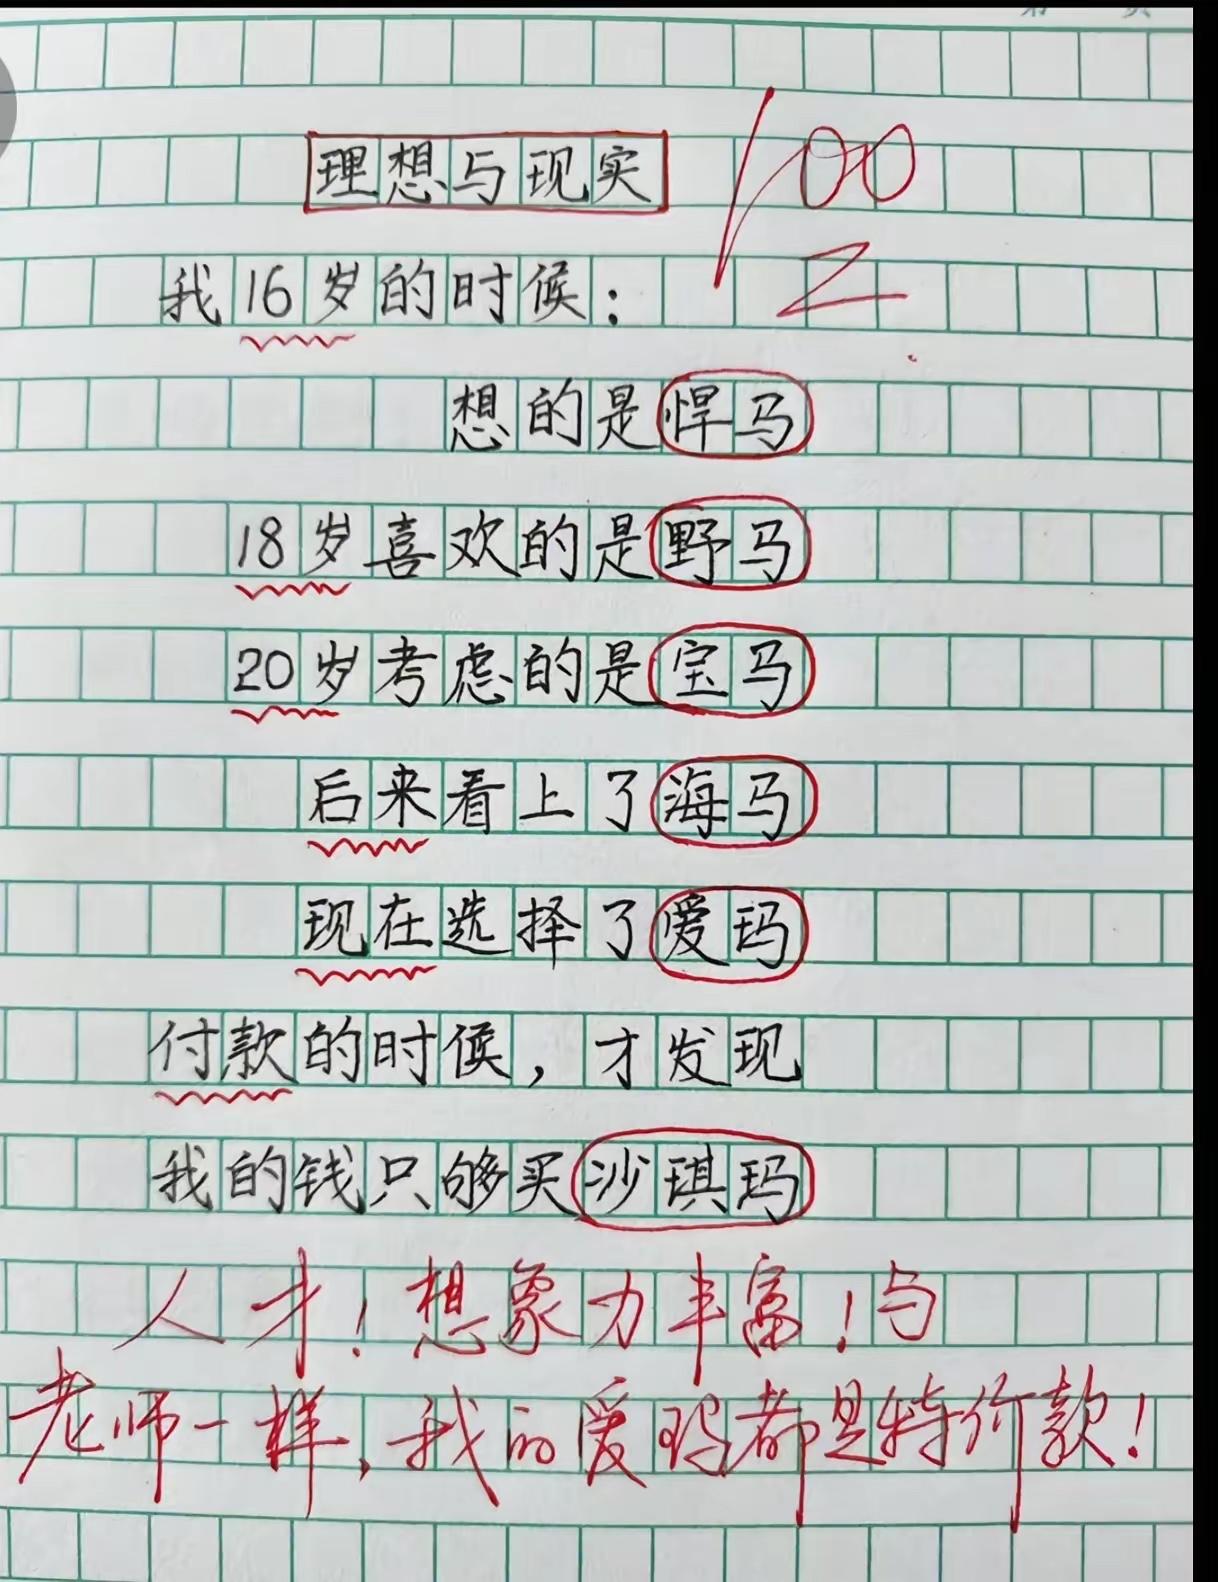 理想与现实
100
我16岁的时候：
想的是悍马
18岁喜欢的是野马
20岁考虑的是宝马
后来看上了海马
现在选择了爱玛
付款的时候，才发现
我的钱只够买沙琪玛
人才！想象力丰富！与
老师一样，我的爱玛都是特价款！